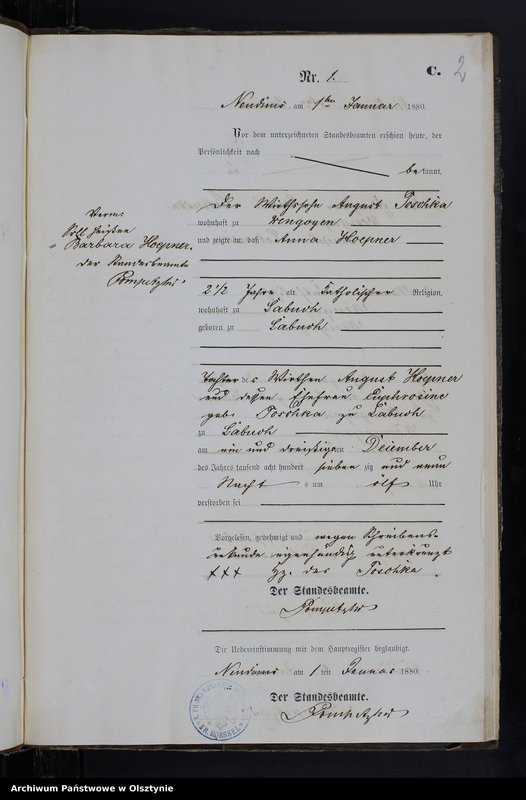 Nr. 1.
C. 2
Neudims am 1ten Januar 1880.
Vor dem unterzeichneten Standesbeamten erschien heute, der
Persönlichkeit nach
bekannt,
Der Wirthssohn August Poschka
wohnhaft zu
und zeigte an, daß Anna Hoepner
2 1/2 Jahre alt katholischer Religion,
wohnhaft zu Labuch
geboren zu Labuch
Tochter des Wirthen August Hoepner
und dessen Ehefrau Euphrosine
geb. Poschka zu Labuch
zu Labuch
am ein und dreißigsten Dezember
des Jahres tausend acht hundert sieben zig und neun
Nacht s um elf Uhr
verstorben sei
Vorgelesen, genehmigt und wegen Schreibens-
unkunde eigenhändig unterkreuzt
+++ Hz. des Poschka
Der Standesbeamte.
Verm:
Soll heißen
"Barbara Hoepner.
Der Standesbeamte
Die Uebereinstimmung mit dem Hauptregister beglaubigt.
Neudims am 1 ten Januar 1880.
Der Standesbeamte.
Archiwum Państwowe w Olsztynie